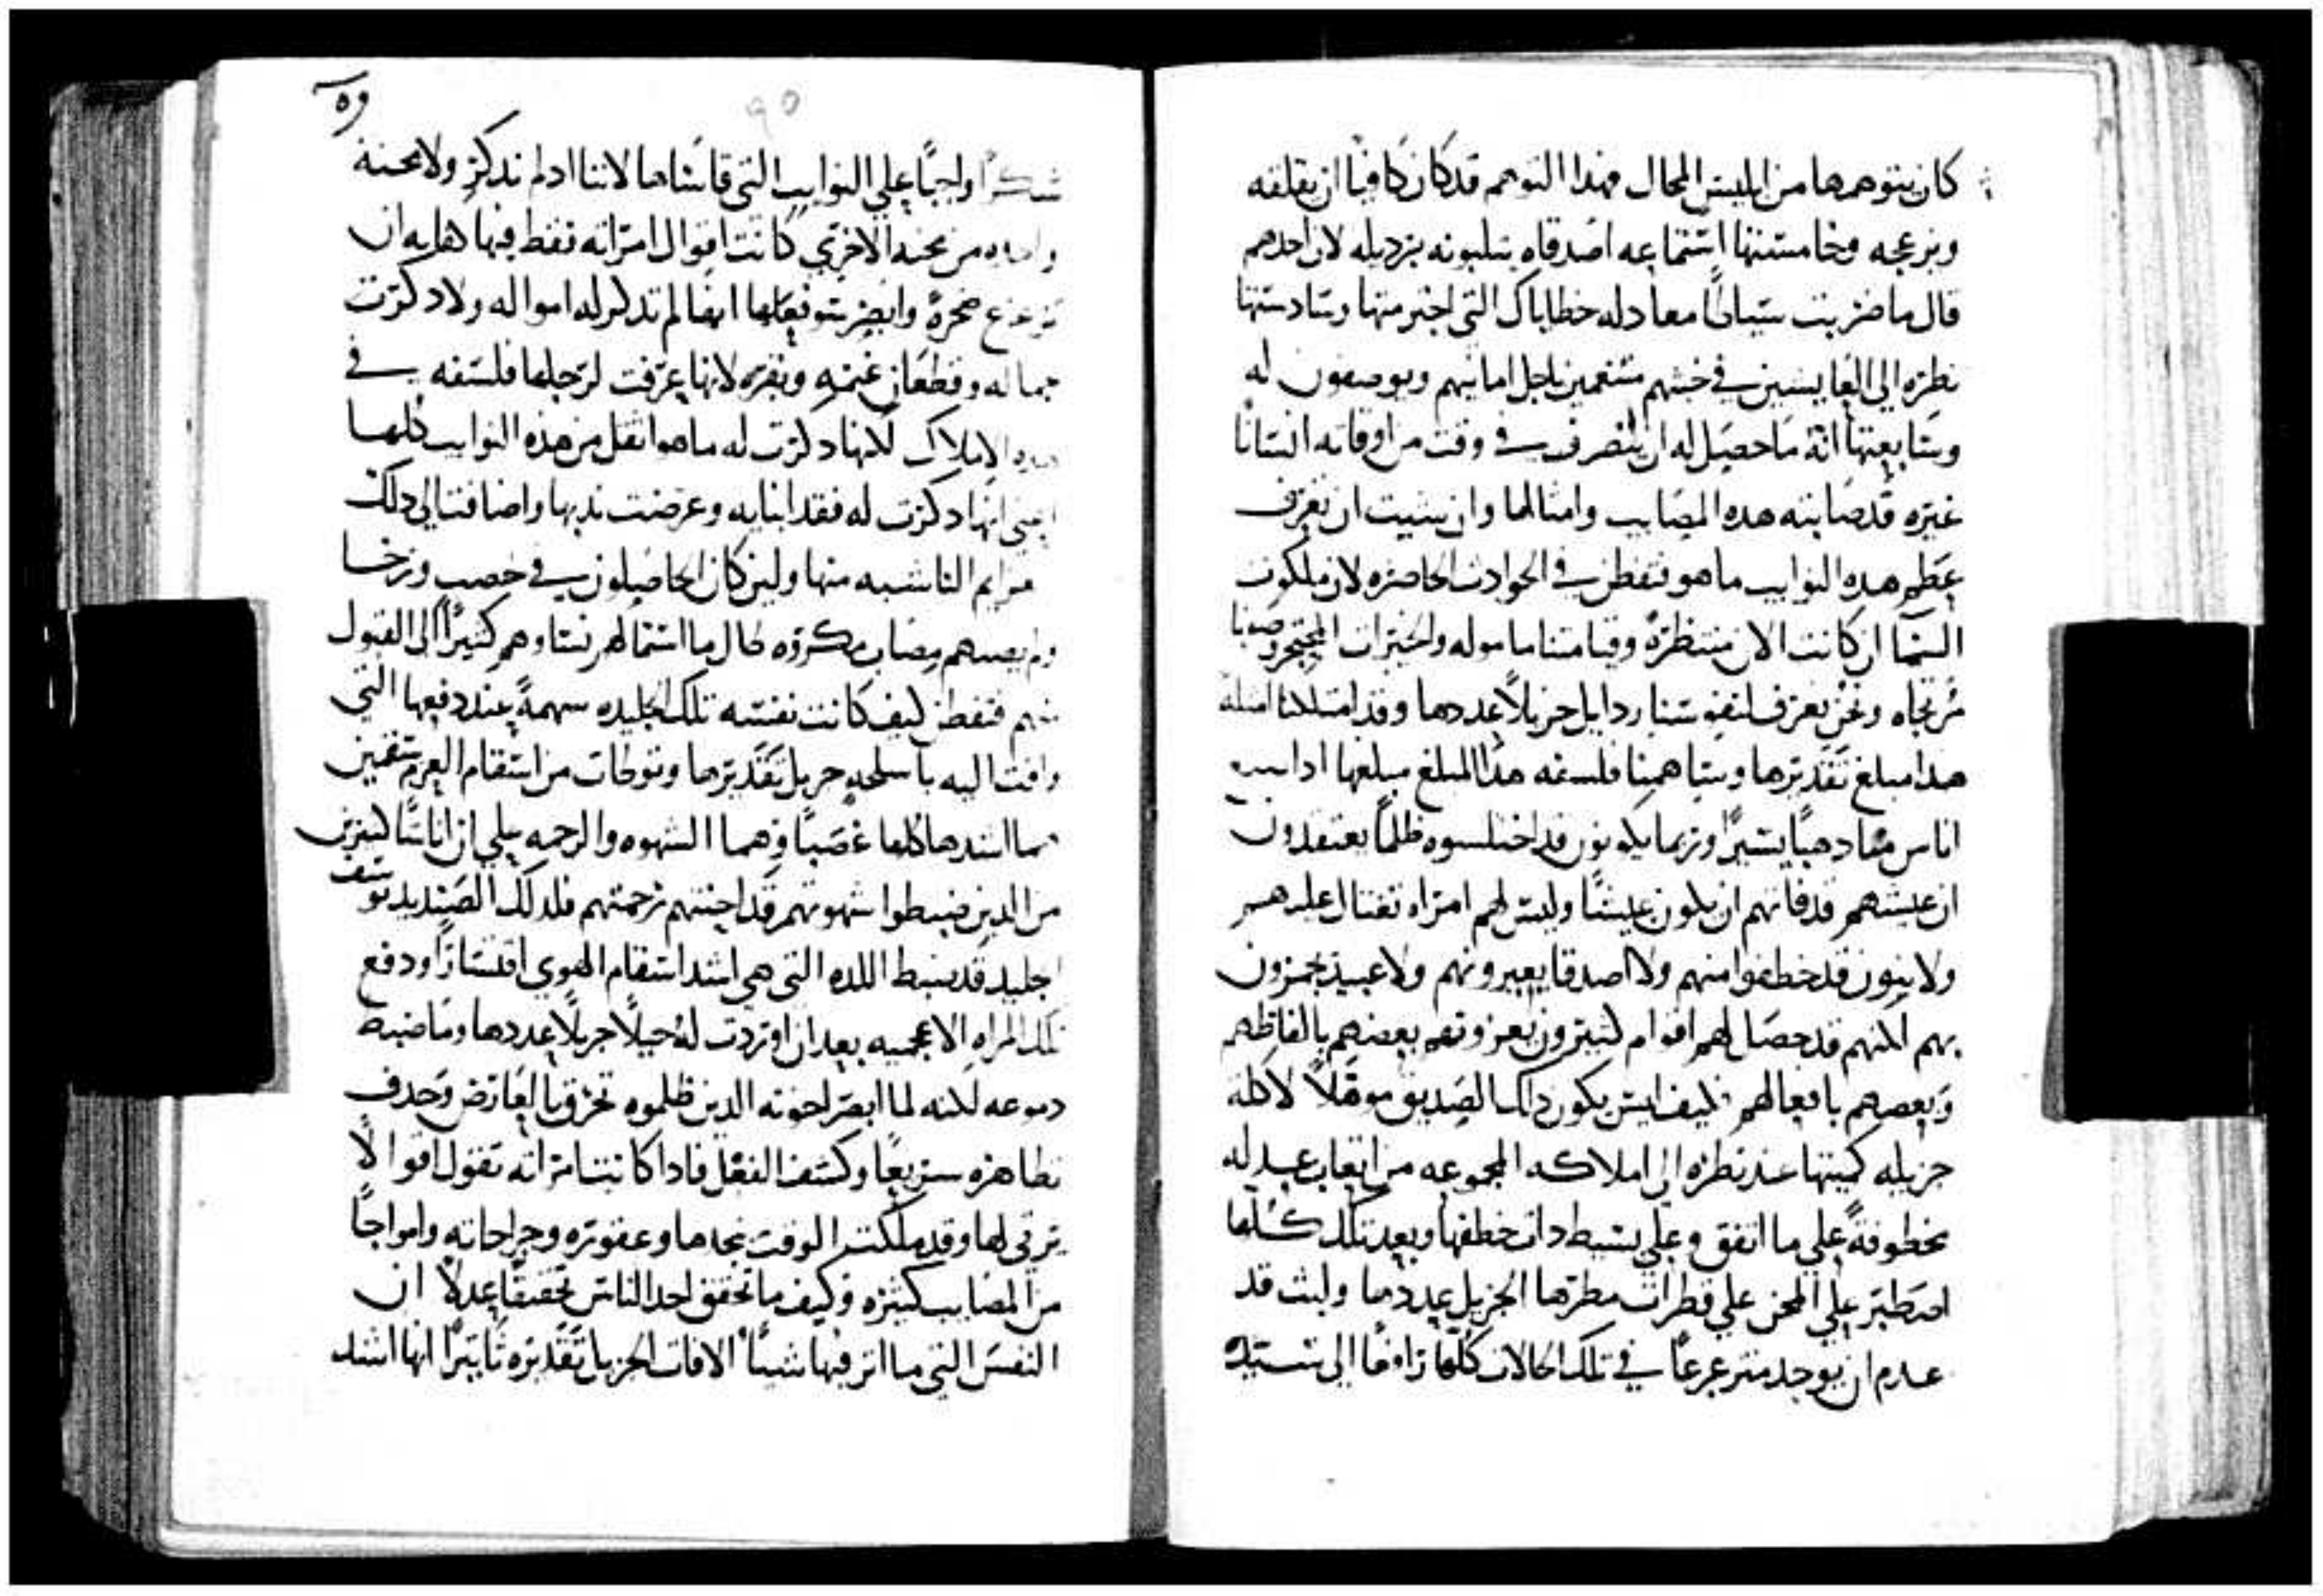 كان يتوهمها من ابليس المحال فهدا التوهم قد كان كافيا ان يقلقه
ويزعجه وخامستها استماعه اصدقاه يثلبونه بزديله لان احدهم
قال ما ضربت سياطا معادله خطاياك التي اجترمتها وسادستها
نظره الي العايشين في خبثهم متنعمين باجل امانيهم ويوصفون له
وسابعتها انه ما حصل له ان يتصرف في وقت من اوقاته انسانا
غيره قد صابته هده المصايب وامثالها وان شيت ان تعرف
عظم هده النوايب ما هو فتفطن في الحوادث الحاضره لان ملكوت
السما ان كانت الان منتظرة وقيامتنا ماموله والخيرات المعتجز وصفها
مرتجاه ونحن نعرف لنفوسنا ردايل جزيلا عددها وقد امتلكنا امثلة
هدا مبلغ تقديرها وساهمنا فلسفه هدا المبلغ مبلغها ادا
اناس منا دهبا يسيرا وربما يكونون قد اختلسوه ظلما يعتقدون
ان عيشهم قد فاتهم ان يكون عيشا وليس لهم امراه تغتال عليهم
ولا بنون قد خطفوا منهم ولا اصدقا يعيرونهم ولا عبيد يجمزون
بهم لكنهم قد حصل لهم اقوام كثيرون يعزونهم بعضهم بالفاظهم
وبعضهم بافعالهم فكيف ليس يكون داك الصديق موهلا لاكلة
جزيله كميتها عند نظره الي املاكه المجموعه من اتعاب عدله
مخطوفة علي ما اتفق وعلي بسيط دات خطفها وبعد تلك كلها
اصطبر علي المحن علي قطرات مطرها الجزيل عددها ولبث قد
عدم ان يوجد متزعزعا في تلك الحالات كلها رافعا الي سيده
90
شكرا واجبا علي النوايب التي قاساها لاننا ادا لم ندكر ولا محنة
واحده من محنه الاخري كانت اقوال امراته فقط فيها اهليه ان
تزعزع صخرة وابصر توقعاتها انها لم تدكر له امواله ولا دكرت
جماله وقطعان غنمه وبقره لانها عرفت لرجلها فلسفه في
هده الاملاك لكنها دكرت له ما هو اثقل من هذه النوايب كلها
اعني انها دكرت له فقد ابنايه وعرضت ندبها واضافت الي دلك
مراثيم الناشبه منها ولين كان الحاصلون في خصب ورخا
ولم يصبهم مصاب مكروه طال ما استمالهم نساوهم كثيرا الي القبول
منهم فتفطن كيف كانت نفسه تلك الجليده سهمة عند دفعها التي
وافت اليه باسلحه جزيل تقديرها وتوطات من اسقام العزم سقمين
هما اشدها كلها غصبا وهما الشهوه والرحمه علي ان اناسا كثيرين
من الدين ضبطوا شهوتهم قد احنتهم رحمتهم فلدلك الصنديد يوسف
الجليد قد ضبط اللده التي هي اشد اسقام الهوي اقتسارا ودفع
تلك المراه الاعجميه بعد ان اوردت له حيلا جزيلا عددها وما ضبط
دموعه لكنه لما ابصر اخوته الدين ظلموه تحرق بالعارض وحدف
تظاهره سريعا وكشف الفعل فادا كانت امراته تقول اقوالا
يرثى لها وقد ملكت الوقت نجدها وعقوره وجراحاته وامواجا
من المصايب كثيره فكيف ما تحقق احد الناس تحقيقا عدلا ان
النفس التي ما اثر فيها شيا الافات الجزيل تقديره تاثيرا انها اشد